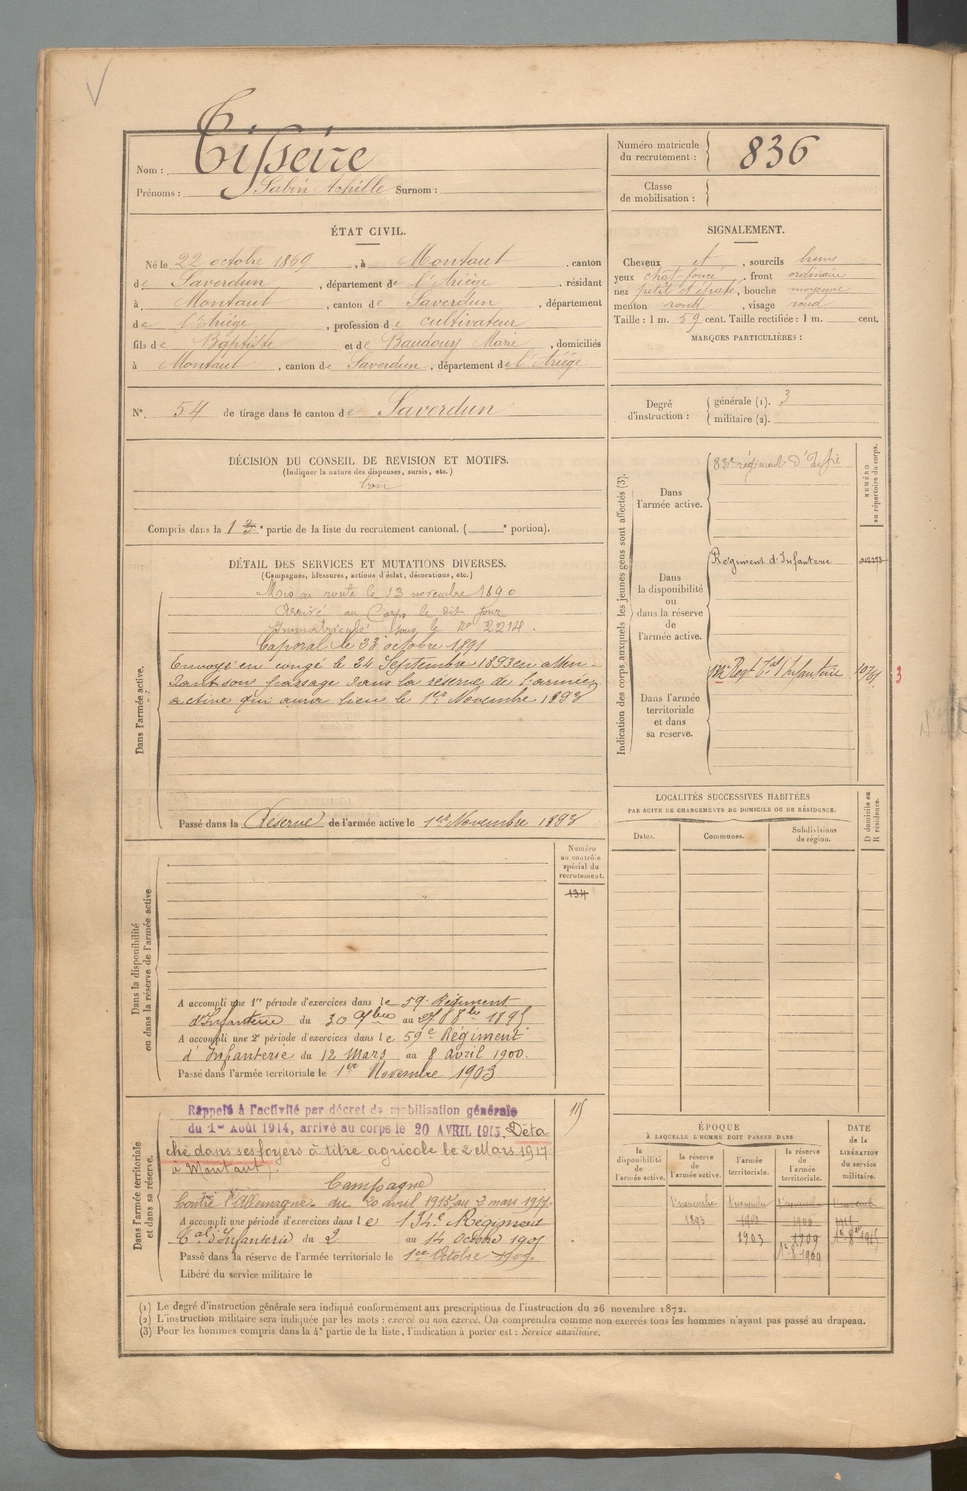 Nom : Tisseire
Prénoms : Sabin Achille Surnom :
Numéro matricule du recrutement : 836
Classe de mobilisation :
ÉTAT CIVIL.
Né le 22 octobre 1869, à Montaut, canton
de Saverdun, département de l'Ariège, résidant
à Montaut, canton de Saverdun, département
de l'Ariège, profession de cultivateur
fils de Baptiste et de Baudouy Marie, domiciliés
à Montaut, canton de Saverdun, département de l'Ariège
N° 54 de tirage dans le canton de Saverdun
SIGNALEMENT.
Cheveux et, sourcils bruns
yeux chat. foncé, front ordinaire
nez petit et épaté, bouche moyenne
menton rond, visage rond
Taille : 1 m. 59 cent. Taille rectifiée : 1 m. cent.
MARQUES PARTICULIÈRES :
Degré d'instruction : générale (1). 3
militaire (2).
DÉCISION DU CONSEIL DE REVISION ET MOTIFS.
(Indiquer la nature des dispenses, sursis, etc.)
bon
Compris dans la 1 partie de la liste du recrutement cantonal. ( e portion).
DÉTAIL DES SERVICES ET MUTATIONS DIVERSES.
(Campagnes, blessures, actions d'éclat, décorations, etc.)
Dans l'armée active.
Mis en route le 13 novembre 1890
Arrivé au Corps le dit jour
Immatriculé sous le No 2214.
Caporal le 23 octobre 1891
Envoyé en congé le 24 Septembre 1893 en atten-
dant son passage dans la réserve de l'armée
active qui aura lieu le 1er Novembre 1893
Passé dans la Réserve de l'armée active le 1er Novembre 1893
Indication des corps auxquels les jeunes gens sont affectés (3).
NUMÉRO au répertoire du corps.
Dans l'armée active.
83e régiment d'Infie
Dans la disponibilité ou dans la réserve de l'armée active.
Régiment d'Infanterie
Dans l'armée territoriale et dans sa réserve.
134e Regt Tal d'Infanterie
3
LOCALITÉS SUCCESSIVES HABITÉES
PAR SUITE DE CHANGEMENTS DE DOMICILE OU DE RÉSIDENCE.
Dates. Communes. Subdivisions de région. D domicile ou R résidence.
Dans la disponibilité ou dans la réserve de l'armée active
Numéro au contrôle spécial du recrutement.
134
A accompli une 1re période d'exercices dans le 59e Régiment
d'Infanterie du 30 au 1895
A accompli une 2e période d'exercices dans le 59e Régiment
d'Infanterie du 12 Mars au 8 avril 1900.
Passé dans l'armée territoriale le 1er Novembre 1903
Dans l'armée territoriale et dans sa réserve.
Rappelé à l'activité par décret de mobilisation générale
du 1er Août 1914, arrivé au corps le 20 AVRIL 1915. Déta
ché dans ses foyers à titre agricole le 2 Mars 1917
à Montaut.
Campagne
Contre l'Allemagne du 20 avril 1915 au 2 mars 1917.
A accompli une période d'exercices dans le 134e Régiment
Tal d'Infanterie du 2 au 14 Octobre 1905
Passé dans la réserve de l'armée territoriale le 1er Octobre 1909
Libéré du service militaire le
115
ÉPOQUE
À LAQUELLE L'HOMME DOIT PASSER DANS
la disponibilité de l'armée active.
la réserve de l'armée active.
l'armée territoriale.
la réserve de l'armée territoriale.
DATE de la LIBÉRATION du service militaire.
1 novembre 1893
1903
1909
(1) Le degré d'instruction générale sera indiqué conformément aux prescriptions de l'instruction du 26 novembre 1872.
(2) L'instruction militaire sera indiquée par les mots : exercé ou non exercé. On comprendra comme non exercés tous les hommes n'ayant pas passé au drapeau.
(3) Pour les hommes compris dans la 4e partie de la liste, l'indication à porter est : Service auxiliaire.